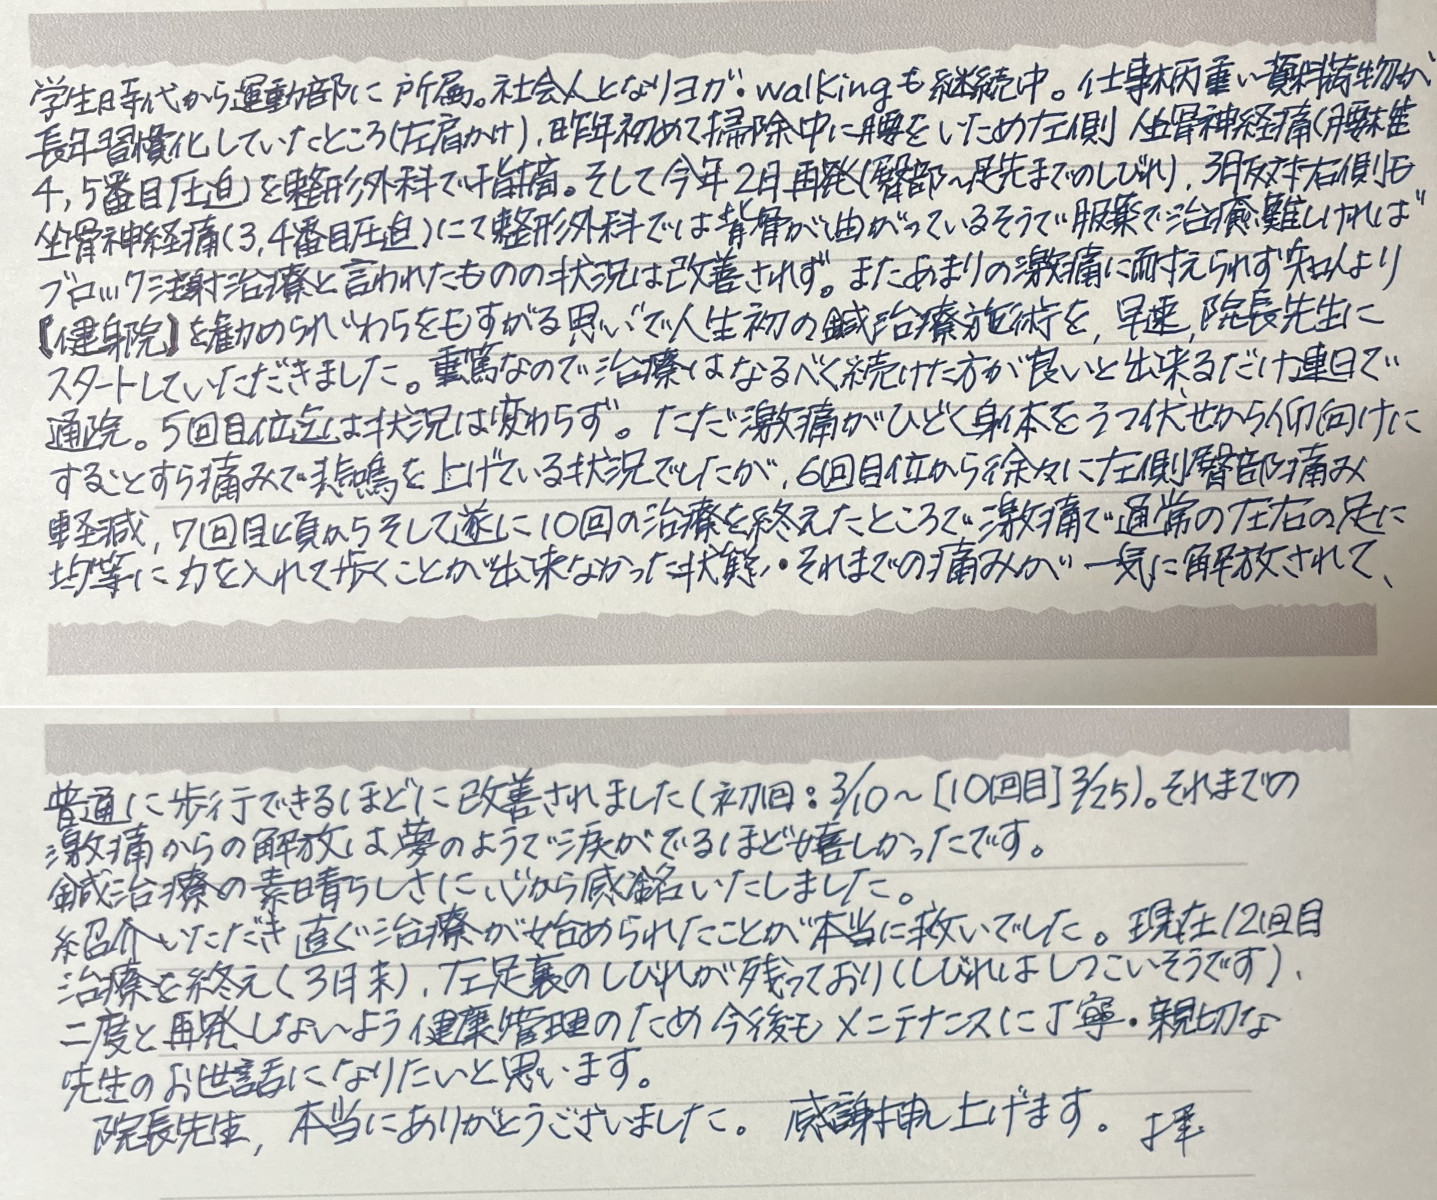 学生時代から運動部に所属。社会人となりヨガ・walkingも継続中。仕事柄重い資料荷物が
長年習慣化していたところ(左肩かけ)、昨年初めて掃除中に腰をいため左側坐骨神経痛(腰椎
4,5番目圧迫)を整形外科で指摘。そして今年2月再発(臀部〜足先までのしびれ)、3月反対右側も
坐骨神経痛(3,4番目圧迫)にて整形外科では背骨が曲がっているそうで服薬で治癒難しければ
ブロック注射治療と言われたものの状況は改善されず。またあまりの激痛に耐えられず知人より
【健身院】を勧められ"わらをもすがる思い"で人生初の鍼治療施術を、早速、院長先生に
スタートしていただきました。重篤なので治療はなるべく続けた方が良いと出来るだけ連日で
通院。5回目位迄は状況は変わらず。ただ激痛がひどく身体をうつ伏せから仰向けに
することすら痛みで悲鳴を上げている状況でしたが、6回目位から徐々に左側臀部痛み
軽減、7回目頃からそして遂に10回の治療を終えたところで激痛で通常の左右の足に
均等に力を入れて歩くことが出来なかった状態・それまでの痛みが一気に解放されて、
普通に歩行できるほどに改善されました(初回:3/10〜[10回目]3/25)。それまでの
激痛からの解放は夢のようで涙がでるほど嬉しかったです。
鍼治療の素晴らしさに心から感銘いたしました。
紹介いただき直ぐ治療が始められたことが本当に救いでした。現在12回目
治療を終え(3月末)、左足裏のしびれが残っており(しびれはしつこいそうです)、
二度と再発しないよう健康管理のため今後もメンテナンスに丁寧・親切な
先生のお世話になりたいと思います。
院長先生、本当にありがとうございました。感謝申し上げます。 拝